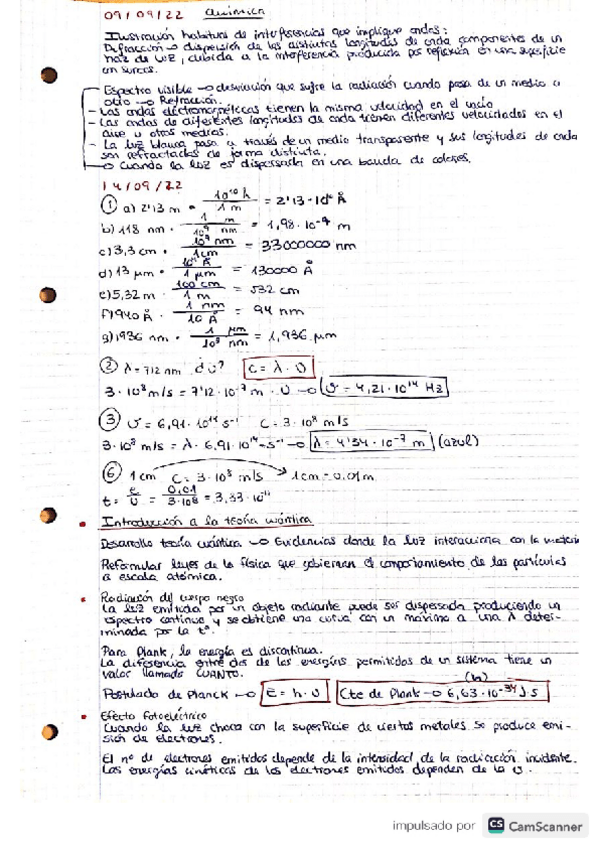 09/09/22 Química
Ilustración habitual de interferencias que implique ondas:
Difracción → dispersión de las distintas longitudes de onda componentes de un
haz de luz, debida a la interferencia producida por reflexión en una superficie
en surcos.
Espectro visible → desviación que sufre la radiación cuando pasa de un medio a
otro → Refracción.
- Las ondas electromagnéticas tienen la misma velocidad en el vacío
- Las ondas de diferentes longitudes de onda tienen diferentes velocidades en el
aire u otros medios.
- La luz blanca pasa a través de un medio transparente y sus longitudes de onda
son refractadas de forma distinta.
→ Cuando la luz es dispersada en una banda de colores.
14/09/22
① a) 2'13 m · 10¹⁰ Å / 1 m = 2'13 · 10¹⁰ Å
b) 118 nm · 1 m / 10⁹ nm = 1,98 · 10⁻⁷ m
c) 3,3 cm · 10⁷ nm / 1 cm = 33000000 nm
d) 13 μm · 10⁴ Å / 1 μm = 130000 Å
e) 5,32 m · 100 cm / 1 m = 532 cm
f) 940 Å · 1 nm / 10 Å = 94 nm
g) 1936 nm · 1 μm / 10³ nm = 1,936 μm
② λ = 712 nm ¿υ? c = λ · υ
3 · 10⁸ m/s = 7'12 · 10⁻⁷ m · υ → υ = 4,21 · 10¹⁴ Hz
③ υ = 6,91 · 10¹⁴ s⁻¹ c = 3 · 10⁸ m/s
3 · 10⁸ m/s = λ · 6,91 · 10¹⁴ s⁻¹ → λ = 4'34 · 10⁻⁷ m (azul)
⑥ 1 cm c = 3 · 10⁸ m/s → 1 cm = 0,01 m
t = e/v = 0,01 / 3·10⁸ = 3,33 · 10⁻¹¹
• Introducción a la teoría cuántica
Desarrollo teoría cuántica → Evidencias donde la luz interacciona con la materia
Reformular leyes de la física que gobiernan el comportamiento de las partículas
a escala atómica.
• Radiación del cuerpo negro
La luz emitida por un objeto radiante puede ser dispersada produciendo un
espectro continuo y se obtiene una curva con un máximo a una λ deter-
minada por la tª.
Para Plank, la energía es discontinua.
La diferencia entre dos de las energías permitidas de un sistema tiene un
valor llamado CUANTO.
(h)
Postulado de Planck → E = h · υ Cte de Plank → 6,63 · 10⁻³⁴ J·s
• Efecto fotoeléctrico
Cuando la luz choca con la superficie de ciertos metales se produce emi-
sión de electrones.
El nº de electrones emitidos depende de la intensidad de la radiación incidente.
Las energías cinéticas de los electrones emitidos dependen de la υ.
impulsado por CS CamScanner